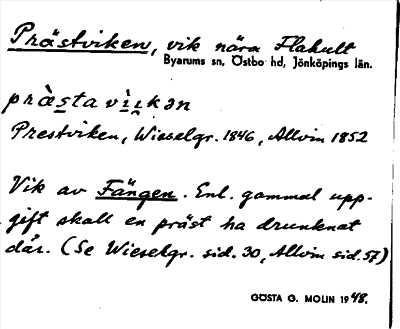 Prästviken, vik nära Flahult
Byarums sn, Östbo hd, Jönköpings län.
prὰsta vìkən
Prestviken, Wieselgr. 1846, Allvin 1852
Vik av Fängen. Enl. gammal upp-
gift skall en präst ha drunknat
där. (Se Wieselgr. sid. 30, Allvin sid. 57)
GÖSTA G. MOLIN 1948.